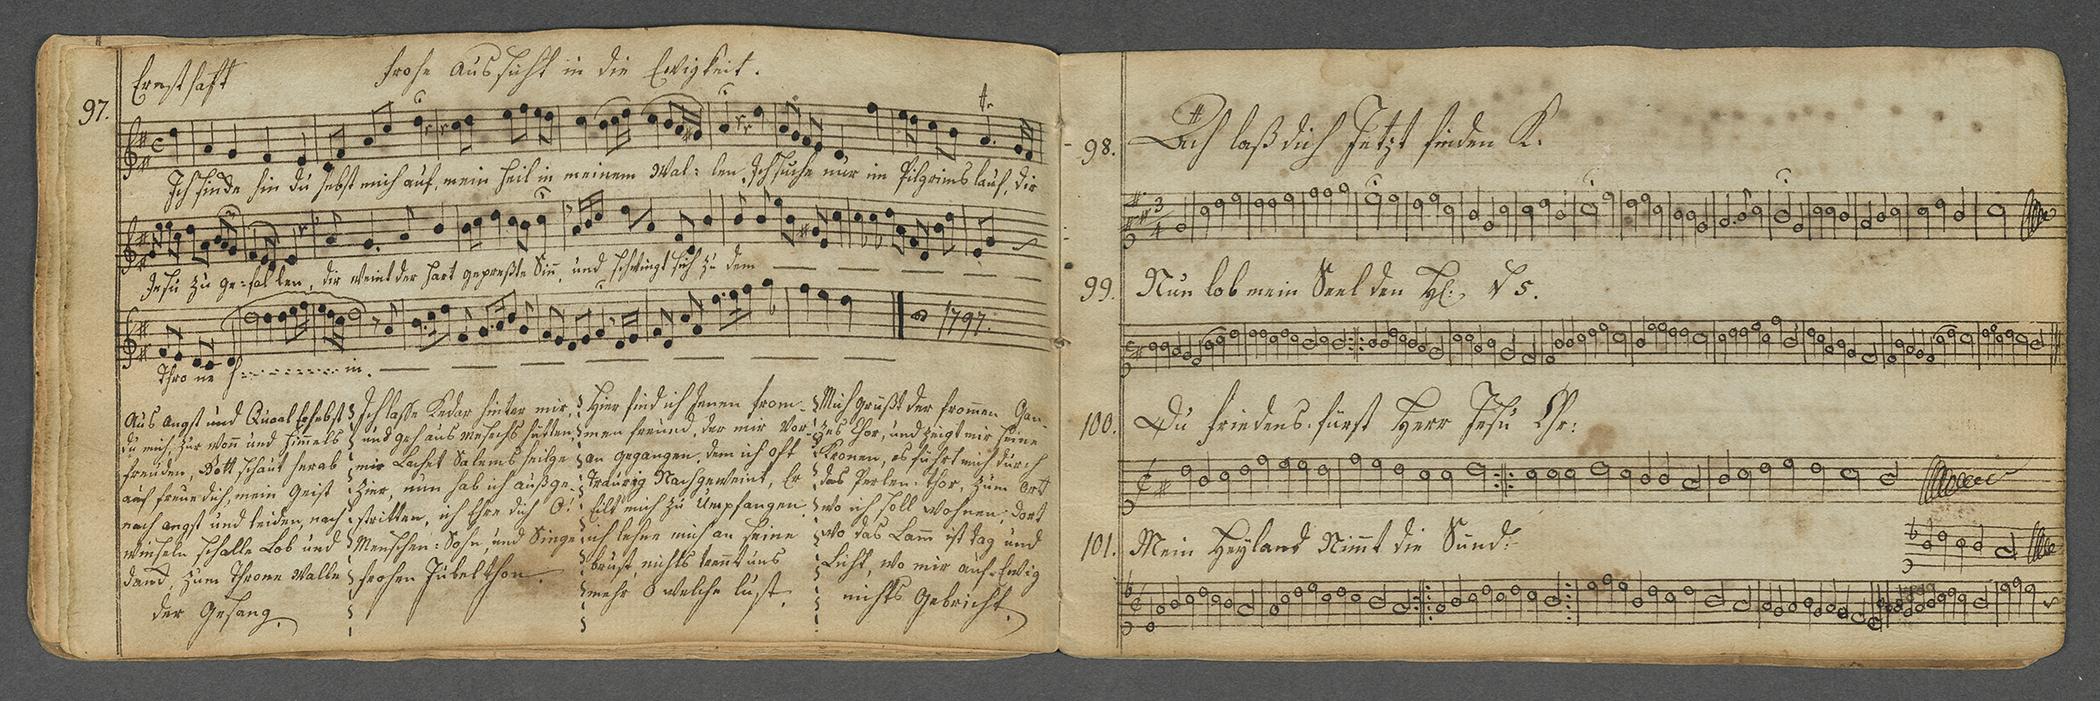 Ernsthaft
frohe Aussicht in die Ewigkeit.
97.
Ich finde hin du hebst mich auf, mein Heil in meinem Wal: len, Ich suche nur im Pilgrims lauf, dir
Jesu zu ge=fal len, dir weint der hart gepreßte Sinn, und schwingt sich zu dem
Thro ne hin.
1797.
Aus Angst und Quaal erhebst
du mich, zur Wonn und Himmels
freuden, Gott schaut herab
auf freue dich, mein Geist
nach Angst und leiden, nach
winseln schalle Lob und
danck, zum Throne walle
der Gesang.
Ich lasse Kedar hinter mir,
und geh aus Mesechs hütten,
mir Lachet Salems heilge
Zier, nun hab ich außge
stritten, ich Ehre dich O!
Menschen: Sohn, und Singe
frohen Jubelthon.
Hier find ich jenen from-
men freund, der mir vor-
an gegangen, dem ich oft
Traurig Nachgeweint, Er
Eilt mich zu Umpfangen,
ich lehne mich an seine
brust, nichts trennt uns
mehr O welche lust.
Mich grüßt der frommen Gan-
zes Chor, und zeigt mir seine
Kronen, es führt mich durch
das Perlen-Thor, zum Ort
wo ich soll wohnen, dort
wo das Lamm ist Tag und
Licht, wo mir auf Ewig
nichts Gebricht.
98.
Ach laß dich Jetzt finden K.
99.
Nun lob mein Seel den H: V 5.
100.
Du friedens-fürst Herr Jesu Chr:
101.
Mein Heyland Nimmt die Sünd: